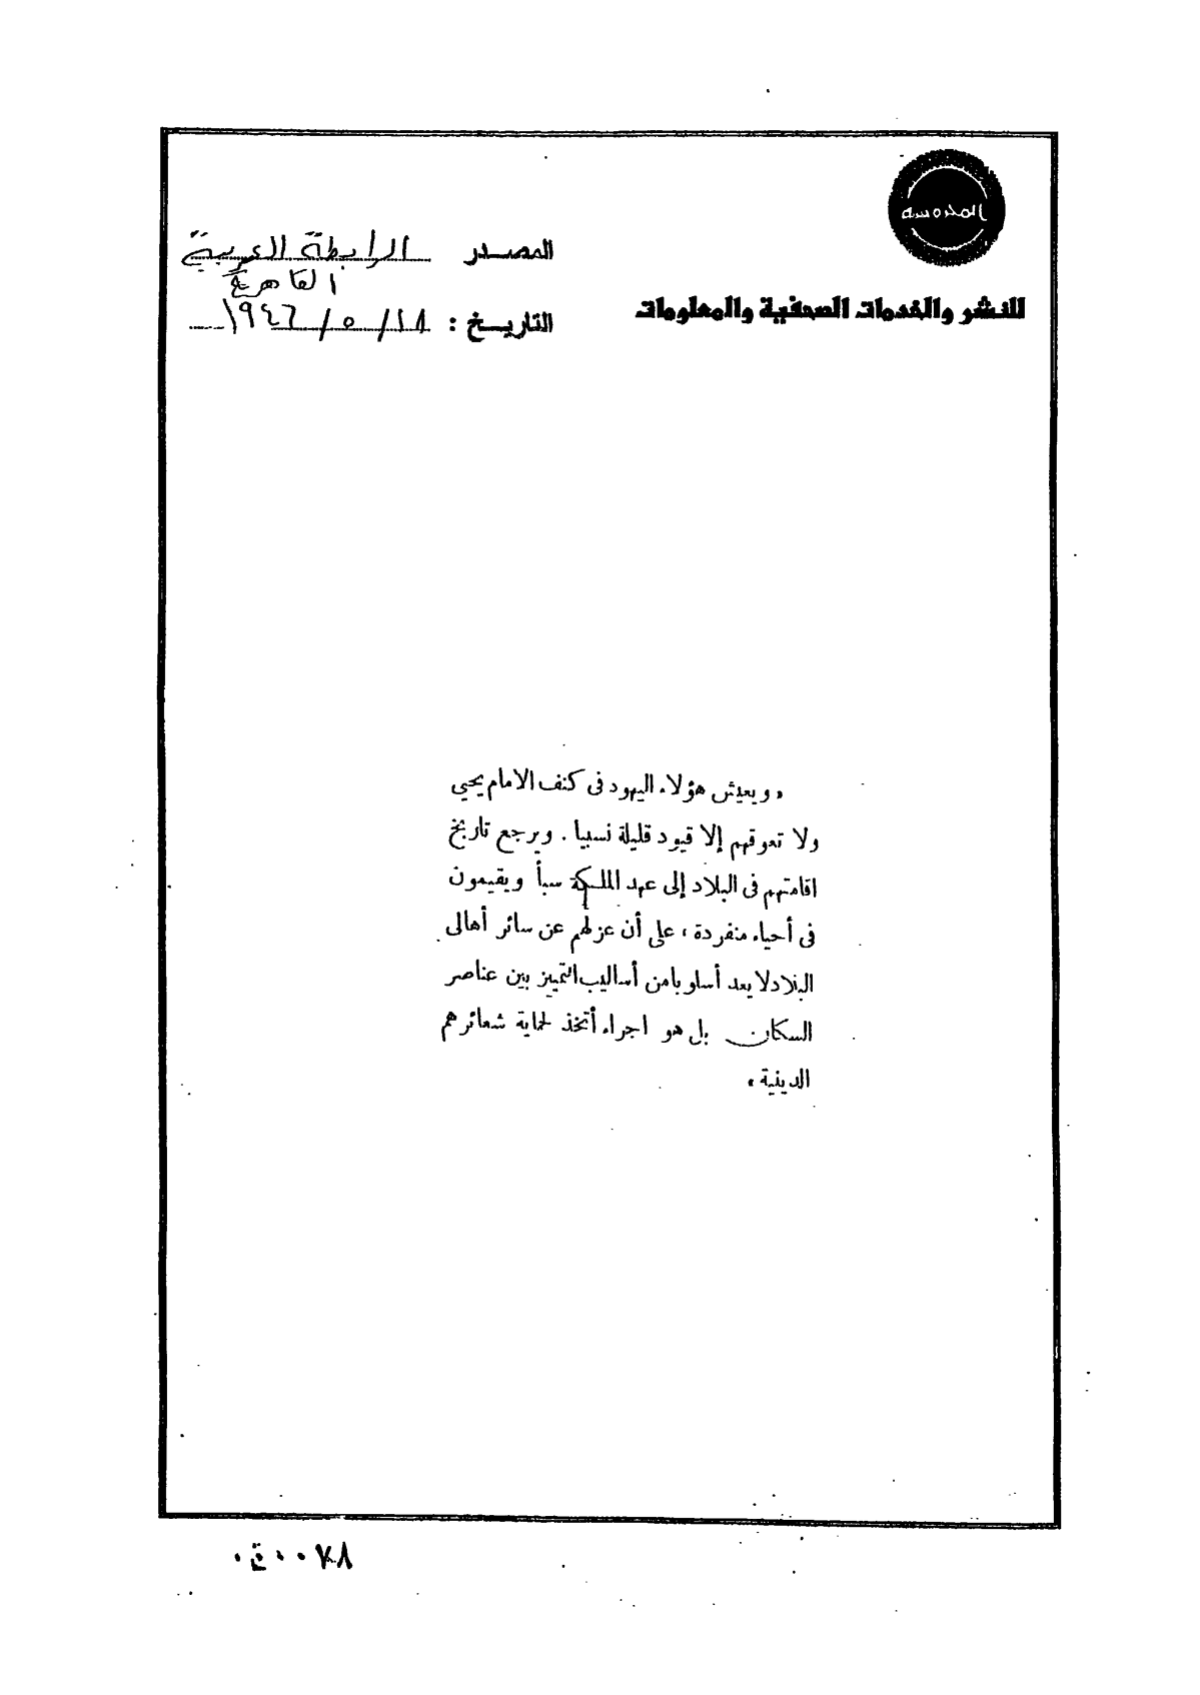 المحروسة
للنشر والخدمات الصحفية والمعلومات
المصدر الرابطة العربية
القاهرة
التاريخ : ١٨ / ٥ / ١٩٤٦
« ويعيش هؤلاء اليهود فى كنف الامام يحيي
ولا تعوقهم إلا قيود قليلة نسبيا . ويرجع تاريخ
اقامتهم فى البلاد إلى عهد الملكة سبأ ويقيمون
فى أحياء منفردة ، على أن عزلهم عن سائر أهالى
البلاد لا يعد أسلوبا من أساليب التمييز بين عناصر
السكان بل هو اجراء أتخذ لحماية شعائرهم
الدينية »